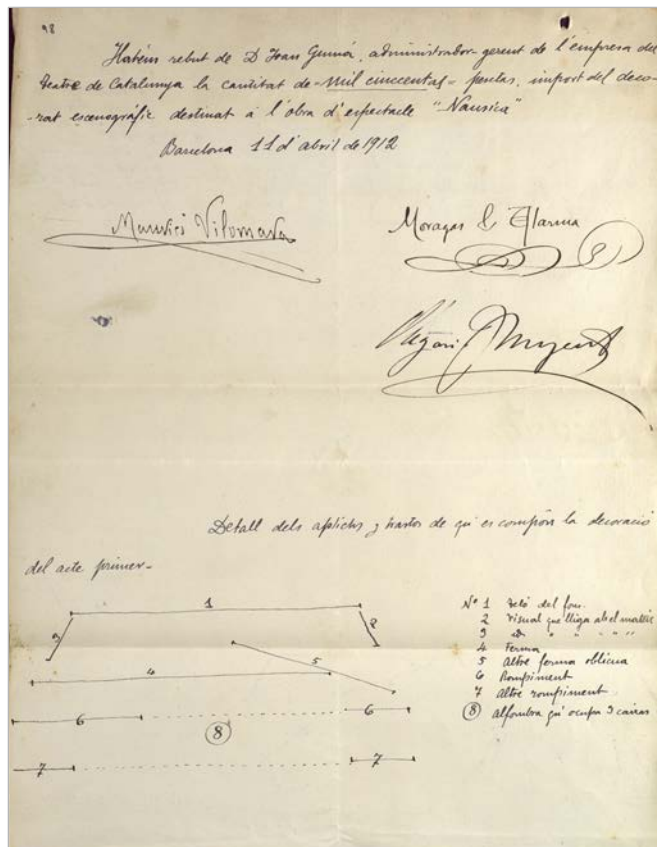 98
Habém rebut de D Joan Gumá, administrador-gerent de l'empresa del
Teatre de Catalunya la cantitat de =Mil cinccentas= pesetas, import del deco-
-rat escenográfic destinat á l'obra d'espectacle "Nausica"
Barcelona 11 d'abril de 1912
Maurici Vilomara
Moragas & Alarma
Olegari Junyent
Detall dels aplichs y trastos de qu' es compon la decoració
del acte primer-
1
3
2
4
5
6
6
8
7
7
Nº 1 Teló del fons.
2 Visual que lliga ab el mateix
3 id " " " "
4 Ferma
5 Altre ferma oblicua
6 Rompiment
7 Altre rompiment
8 Alfombra qu' ocupa 3 caixas